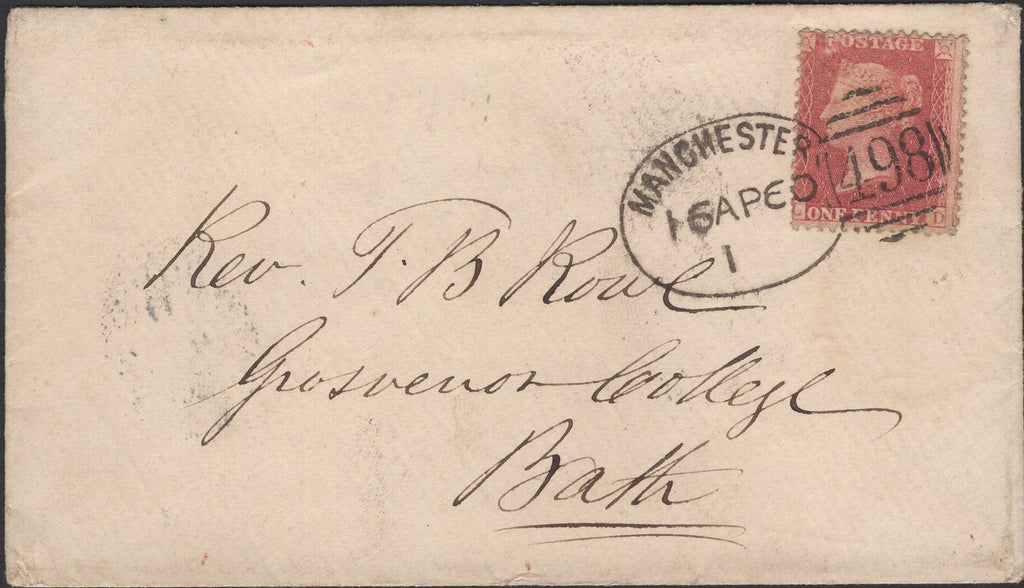 POSTAGE
ONE PENNY
D
MANCHESTER
498
16 APE 3
1
Rev. T. B Rowe
Grosvenor College
Bath